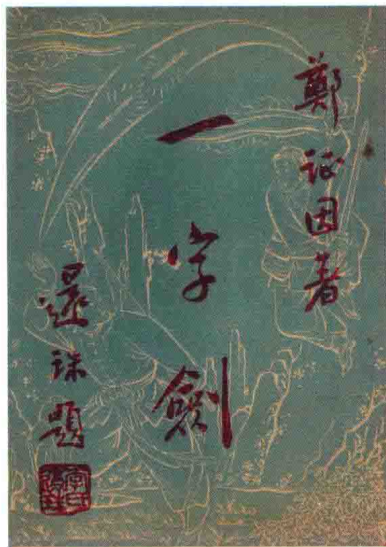 鄭证因著
一字劍
還珠題